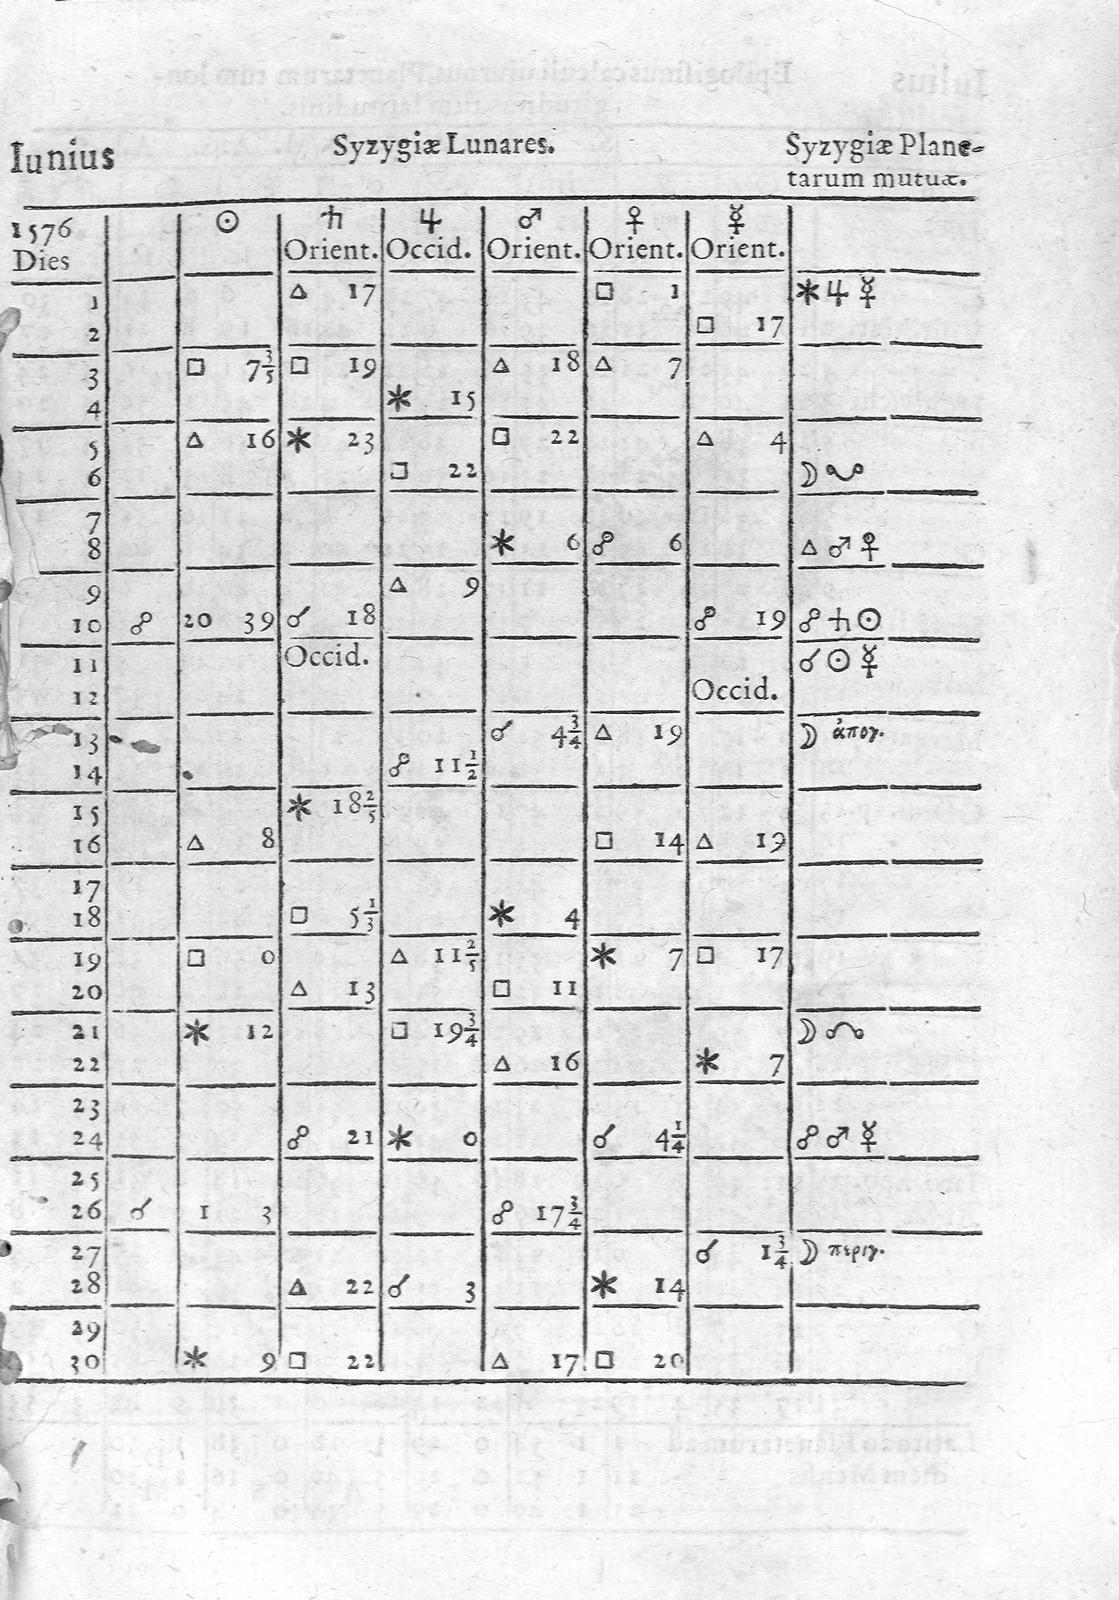 Iunius Syzygiæ Lunares. Syzygiæ Plane-
tarum mutuæ.
1576 ☉ ♄ ♃ ♂ ♀ ☿
Dies Orient. Occid. Orient. Orient. Orient.
1 △ 17 □ 1 ✶ ♃ ☿
2 □ 17
3 □ 7 3/5 □ 19 △ 18 △ 7
4 ✶ 15
5 △ 16 ✶ 23 □ 22 △ 4
6 □ 22 ☽ ☋
7
8 ✶ 6 ☍ 6 △ ♂ ♀
9 △ 9
10 ☍ 20 39 ☌ 18 ☍ 19 ☍ ♄ ☉
11 Occid. ☌ ☉ ☿
12 Occid.
13 ☌ 4 3/4 △ 19 ☽ ἀπογ.
14 ☍ 11 1/2
15 ✶ 18 2/5
16 △ 8 □ 14 △ 19
17
18 □ 5 1/3 ✶ 4
19 □ 0 △ 11 2/5 ✶ 7 □ 17
20 △ 13 □ 11
21 ✶ 12 □ 19 3/4 ☽ ☊
22 △ 16 ✶ 7
23
24 ☍ 21 ✶ 0 ☌ 4 1/4 ☍ ♂ ☿
25
26 ☌ 1 3 ☍ 17 3/4
27 ☌ 1 3/4 ☽ περιγ.
28 △ 22 ☌ 3 ✶ 14
29
30 ✶ 9 □ 22 △ 17 □ 20